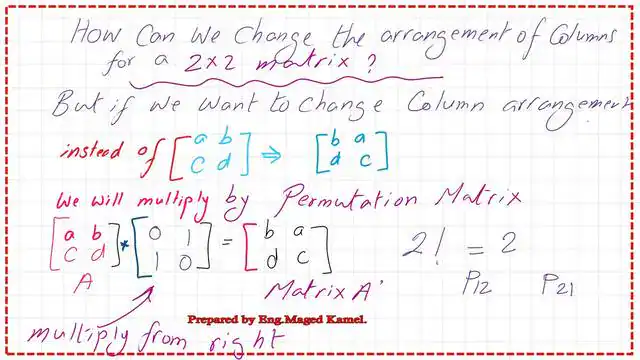 How Can We Change the arrangement of Columns
for a 2x2 matrix ?
But if we want to change Column arrangement
instead of [a b c d] ⇒ [b a d c]
We will multiply by Permutation Matrix
[a b c d] * [0 1 1 0] = [b a d c] 2! = 2
A Matrix A' P12 P21
Prepared by Eng.Maged Kamel.
multiply from right